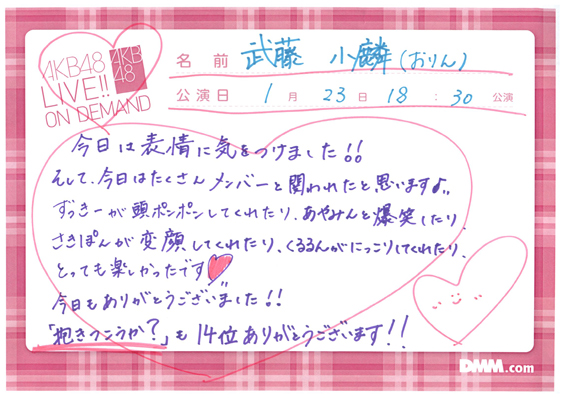 AKB48
LIVE!!
ON DEMAND
AKB
48
名前 武藤 小麟(おりん)
公演日 1月23日18:30公演
今日は表情に気をつけました!!
そして、今日はたくさんメンバーと関われたと思いますよ!!
ずっきーが頭ポンポンしてくれたり、あやみんと爆笑したり、
さきぽんが変顔してくれたり、くるるんがにっこりしてくれたり、
とっても楽しかったです
今日もありがとうございました!!
「抱きつこうか?」も14位ありがとうございます!!
DMM.com